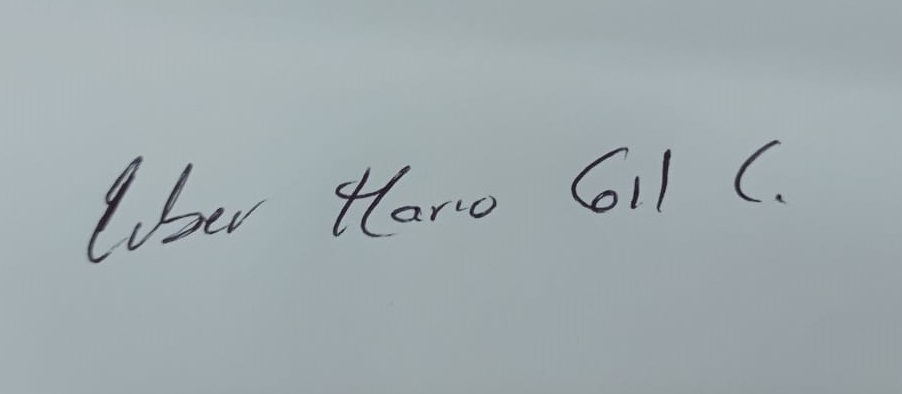 Liber Mario Gil C.